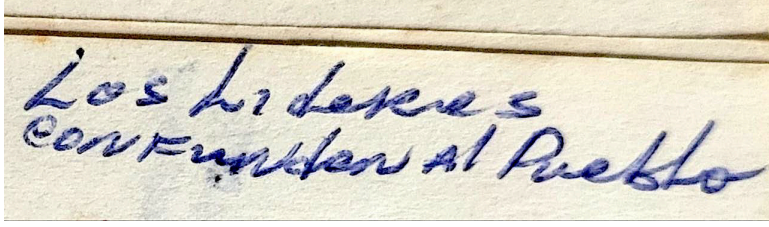 Los Lideres
confunden al Pueblo